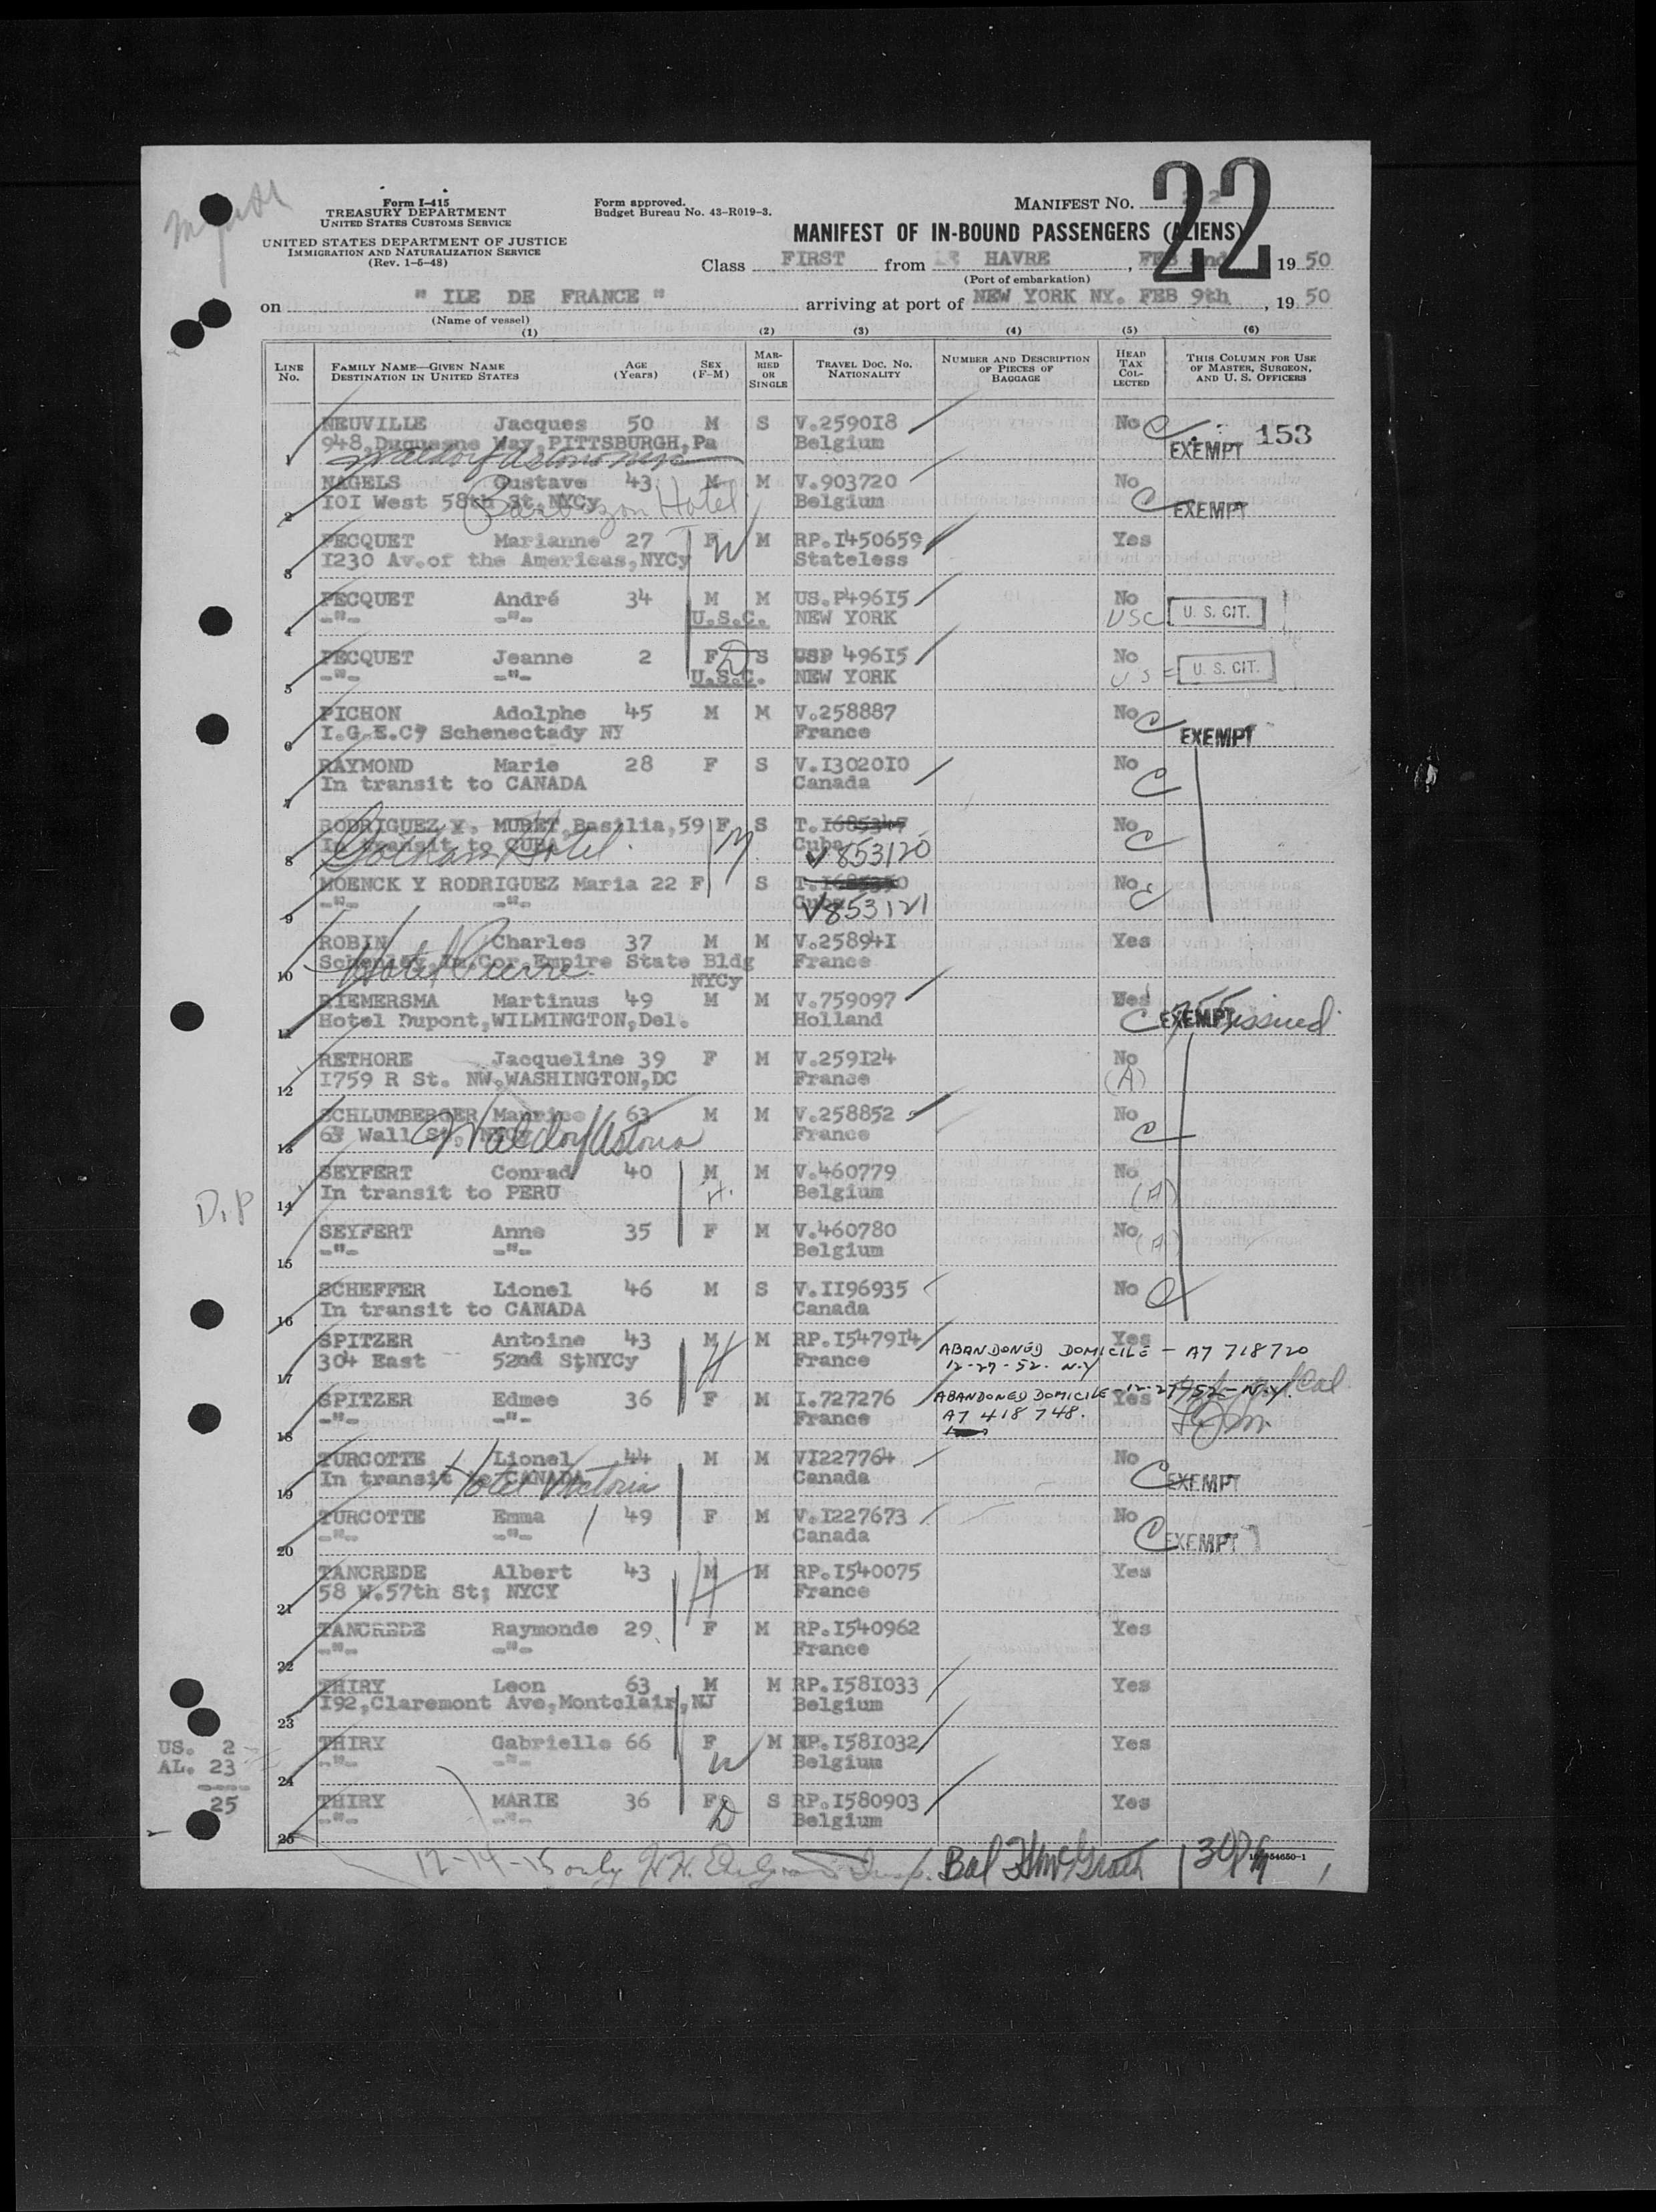 Form I-415
TREASURY DEPARTMENT
UNITED STATES CUSTOMS SERVICE
UNITED STATES DEPARTMENT OF JUSTICE
IMMIGRATION AND NATURALIZATION SERVICE
(Rev. 1-5-48)
Form approved.
Budget Bureau No. 43-R019-3.
MANIFEST NO. 22
22
MANIFEST OF IN-BOUND PASSENGERS (ALIENS)
Class FIRST from HAVRE, FEB 2nd 1950
(Port of embarkation)
on " ILE DE FRANCE " arriving at port of NEW YORK NY. FEB 9th, 1950
(Name of vessel)
(1) (2) (3) (4) (5) (6)
LINE No. FAMILY NAME—GIVEN NAME DESTINATION IN UNITED STATES AGE (Years) SEX (F-M) MARRIED OR SINGLE TRAVEL DOC. NO. NATIONALITY NUMBER AND DESCRIPTION OF PIECES OF BAGGAGE HEAD TAX COLLECTED THIS COLUMN FOR USE OF MASTER, SURGEON, AND U. S. OFFICERS
NEUVILLE Jacques 50 M S V.259018 No C 153
1 948,Duquesne Way,PITTSBURGH,Pa Belgium EXEMPT
Waldorf Astoria
NAGELS Gustave 43 M M V.903720 No
2 IOI West 58th St.NYCy Barbizon Hotel Belgium C EXEMPT
PECQUET Marianne 27 F W M RP.I450659 Yes
3 I230 Av.of the Americas,NYCy Stateless
PECQUET André 34 M M US.P49615 No
4 -"- -"- U.S.C. NEW YORK USC U. S. CIT.
PECQUET Jeanne 2 F D S USP 49615 No
5 -"- -"- U.S.C. NEW YORK U. S. CIT.
PICHON Adolphe 45 M M V.258887 No C
6 I.G.E.C° Schenectady NY France EXEMPT
RAYMOND Marie 28 F S V.I302010 No
7 In transit to CANADA Canada C
RODRIGUEZ Y. MURET,Basilia,59 F M S No
8 In transit to CUBA Gotham Hotel Cuba V853120 C
MOENCK Y RODRIGUEZ Maria 22 F S No
9 -"- -"- Cuba V853121 C
ROBIN Charles 37 M M V.25894I Yes
10 Schenley,Im.Cor.Empire State Bldg NYCy Hotel Pierre France
RIEMERSMA Martinus 49 M M V.759097 Yes
11 Hotel Dupont,WILMINGTON,Del. Holland C EXEMPT issued
RETHORE Jacqueline 39 F M V.259I24 No
12 I759 R St. NW,WASHINGTON,DC France (A)
SCHLUMBERGER Maurice 63 M M V.258852 No
13 63 Wall St. Waldorf Astoria France C
SEYFERT Conrad 40 M H. M V.460779 No
14 In transit to PERU Belgium (A)
D.P
SEYFERT Anne 35 F M V.460780 No
15 -"- -"- Belgium (A)
SCHEFFER Lionel 46 M S V.II96935 No C
16 In transit to CANADA Canada
SPITZER Antoine 43 M H M RP.I547914 ABANDONED DOMICILE - A7 718720 Yes
17 304 East 52nd St;NYCy France 12-27-52. N.Y
SPITZER Edmee 36 F M I.727276 ABANDONED DOMICILE - 12-27-52 - N.Y. Yes
18 -"- -"- France A7 418 748.
TURCOTTE Lionel 44 M M VI227764 No
19 In transit to CANADA Hotel Victoria Canada C EXEMPT
TURCOTTE Emma 49 F M V.I227673 No
20 -"- -"- Canada C EXEMPT
TANCREDE Albert 43 M H M RP.I540075 Yes
21 58 W.57th St; NYCY France
TANCREDE Raymonde 29 F M RP.I540962 Yes
22 -"- -"- France
THIRY Leon 63 M M RP.I58I033 Yes
23 I92,Claremont Ave,Montclair,NJ Belgium
THIRY Gabrielle 66 F W M RP.I58I032 Yes
24 -"- -"- Belgium
THIRY MARIE 36 F D S RP.I580903 Yes
25 -"- -"- Belgium
US. 2
AL. 23
25
12-14-15 only Insp. Bal